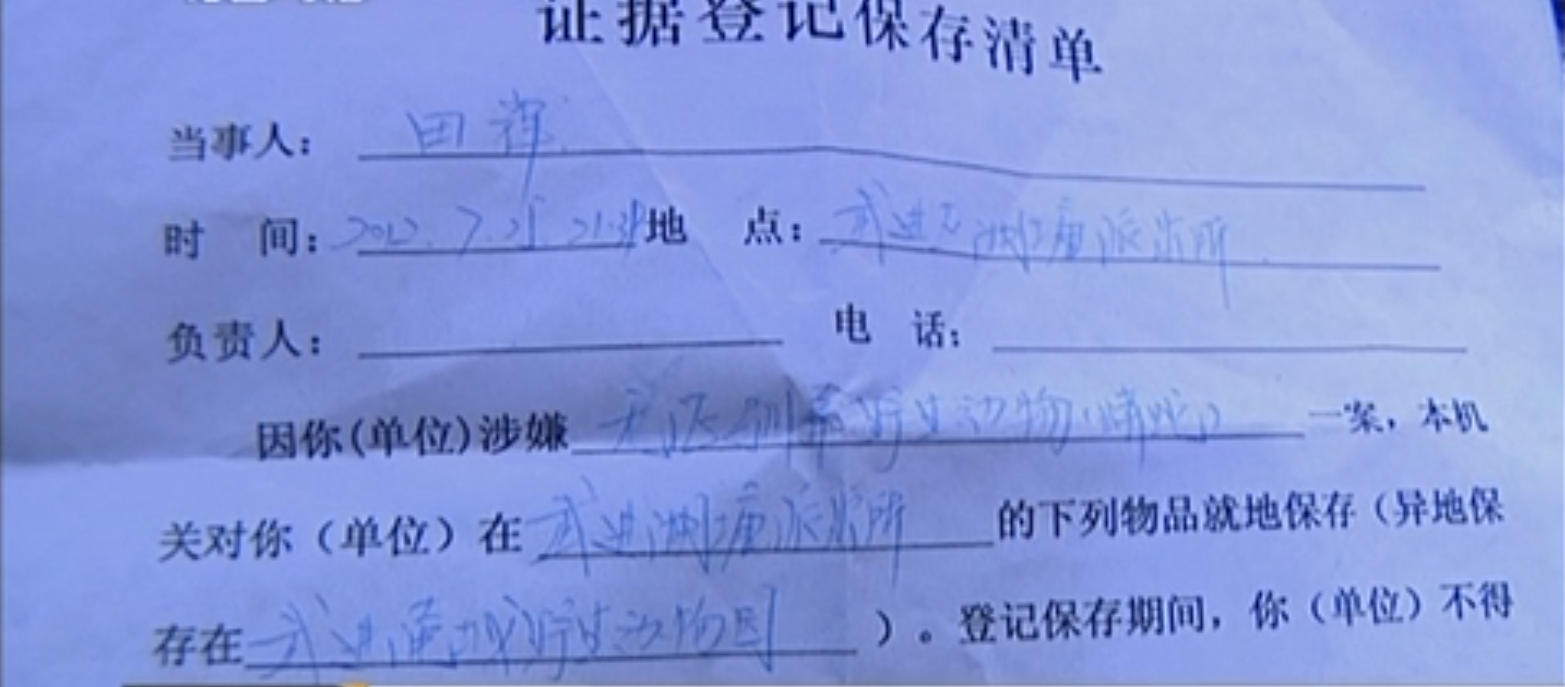 证据登记保存清单
当事人： 田
时 间：2012.7.25 21: 地 点：武进区湖塘派出所
负责人： 电 话：
因你(单位)涉嫌 无证驯养野生动物（蟒蛇） 一案，本机
关对你（单位）在 武进湖塘派出所 的下列物品就地保存（异地保
存在 武进淹城野生动物园 ）。登记保存期间，你（单位）不得